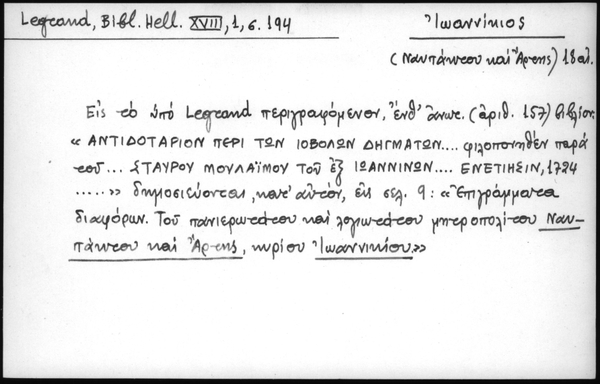 Legrand, Bibl. Hell. XVIII, 1, σ. 194
Ἰωαννίκιος
(Ναυπάκτου καὶ Ἄρτης) 18 αἰ.
Εἰς τὸ ὑπό Legrand περιγραφόμενον, ἔνθ' ἄνωτ. (ἀριθ. 157) βιβλίον:
« ΑΝΤΙΔΟΤΑΡΙΟΝ ΠΕΡΙ ΤΩΝ ΙΟΒΟΛΩΝ ΔΗΓΜΑΤΩΝ.... φιλοπονηθέν παρά
τοῦ... ΣΤΑΥΡΟΥ ΜΟΥΛΑΪΜΟΥ ΤΟῦ ἐξ ΙΩΑΝΝΙΝΩΝ.... ΕΝΕΤΙΗΣΙΝ, 1724
.....» δημοσιεύονται, κατ' αὐτόν, εἰς σελ. 9: «Ἐπιγράμματα
διαφόρων. Τοῦ πανιερωτάτου καὶ λογιωτάτου μητροπολίτου Ναυ-
πάκτου καὶ Ἄρτης, κυρίου Ἰωαννικίου.»